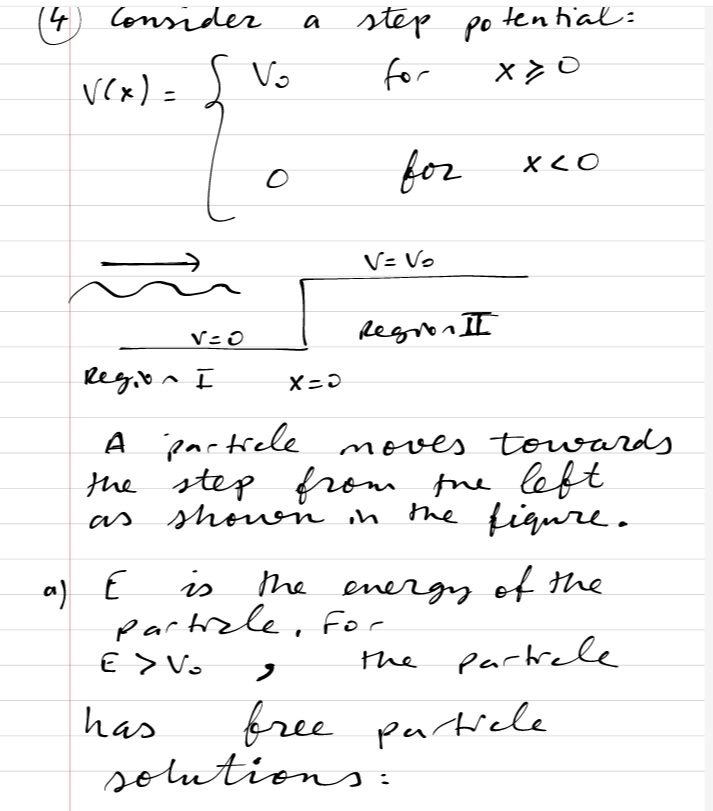 (4) Consider a step potential:
V(x) = { V₀ for x ≥ 0
0 for x < 0
V = V₀
V = 0 Region II
Region I x = 0
A particle moves towards
the step from the left
as shown in the figure.
a) E is the energy of the
particle. For
E > V₀ , the particle
has free particle
solutions: